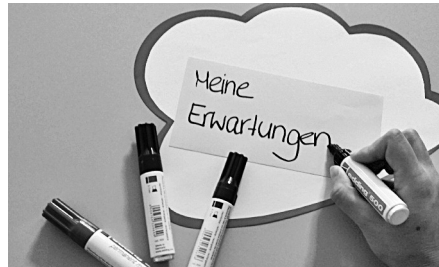 Meine
Erwartungen
edding 500